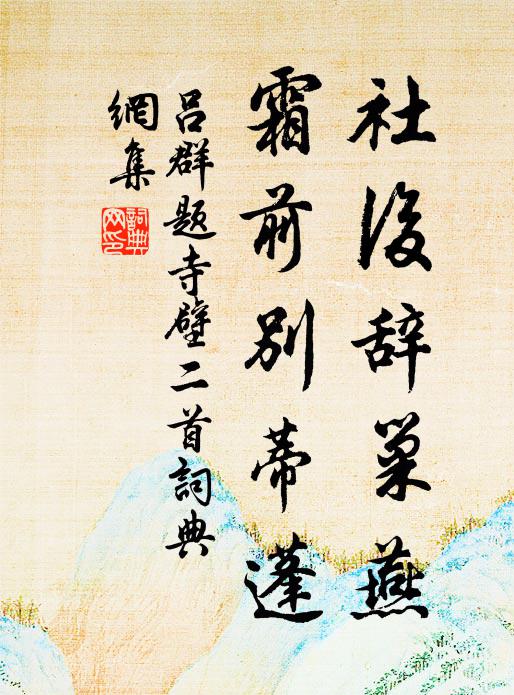 社後辞巢燕
霜前别蒂蓬
吕群题寺壁二首詞典
網集
詞典
网印